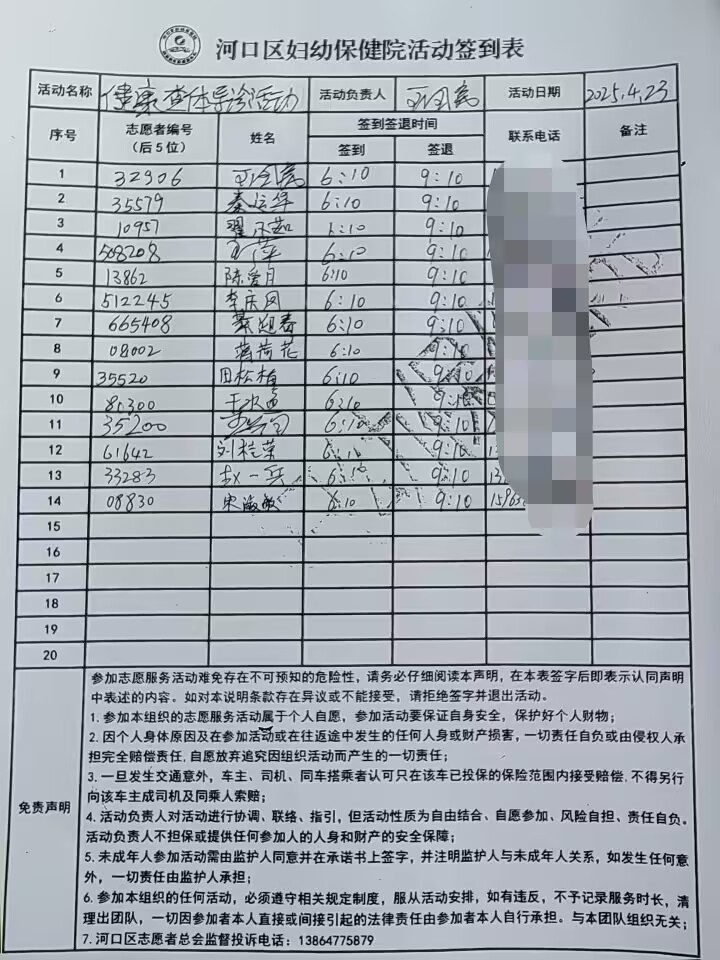 河口区妇幼保健院活动签到表
活动名称 健康查体导诊活动 活动负责人 活动日期 2025.4.23
序号 志愿者编号（后5位） 姓名 签到签退时间 联系电话 备注
签到 签退
1 32906 6:10 9:10
2 35579 秦运华 6:10 9:10
3 10957 6:10 9:10
4 508208 6:10 9:10
5 13862 陈爱月 6:10 9:10
6 512245 6:10 9:10
7 665408 綦迎春 6:10 9:10
8 08002 蒋荷花 6:10 9:10
9 35520 田松植 6:10 9:10
10 9:10
11 35200 6:10 9:10
12 61642 刘桂荣 9:10
13 33283 赵一兵 9:10
14 08830 宋海敏 6:10 9:10
15
16
17
18
19
20
免责声明
参加志愿服务活动难免存在不可预知的危险性，请务必仔细阅读本声明，在本表签字后即表示认同声明
中表述的内容。如对本说明条款存在异议或不能接受，请拒绝签字并退出活动。
1. 参加本组织的志愿服务活动属于个人自愿，参加活动要保证自身安全，保护好个人财物；
2. 因个人身体原因及在参加活动或在往返途中发生的任何人身或财产损害，一切责任自负或由侵权人承
担完全赔偿责任，自愿放弃追究因组织活动而产生的一切责任；
3. 一旦发生交通意外，车主、司机、同车搭乘者认可只在该车已投保的保险范围内接受赔偿，不得另行
向该车主成司机及同乘人索赔；
4. 活动负责人对活动进行协调、联络、指引，但活动性质为自由结合、自愿参加、风险自担、责任自负。
活动负责人不担保或提供任何参加人的人身和财产的安全保障；
5. 未成年人参加活动需由监护人同意并在承诺书上签字，并注明监护人与未成年人关系，如发生任何意
外，一切责任由监护人承担；
6. 参加本组织的任何活动，必须遵守相关规定制度，服从活动安排，如有违反，不予记录服务时长，清
理出团队，一切因参加者本人直接或间接引起的法律责任由参加者本人自行承担。与本团队组织无关；
7. 河口区志愿者总会监督投诉电话：13864775879